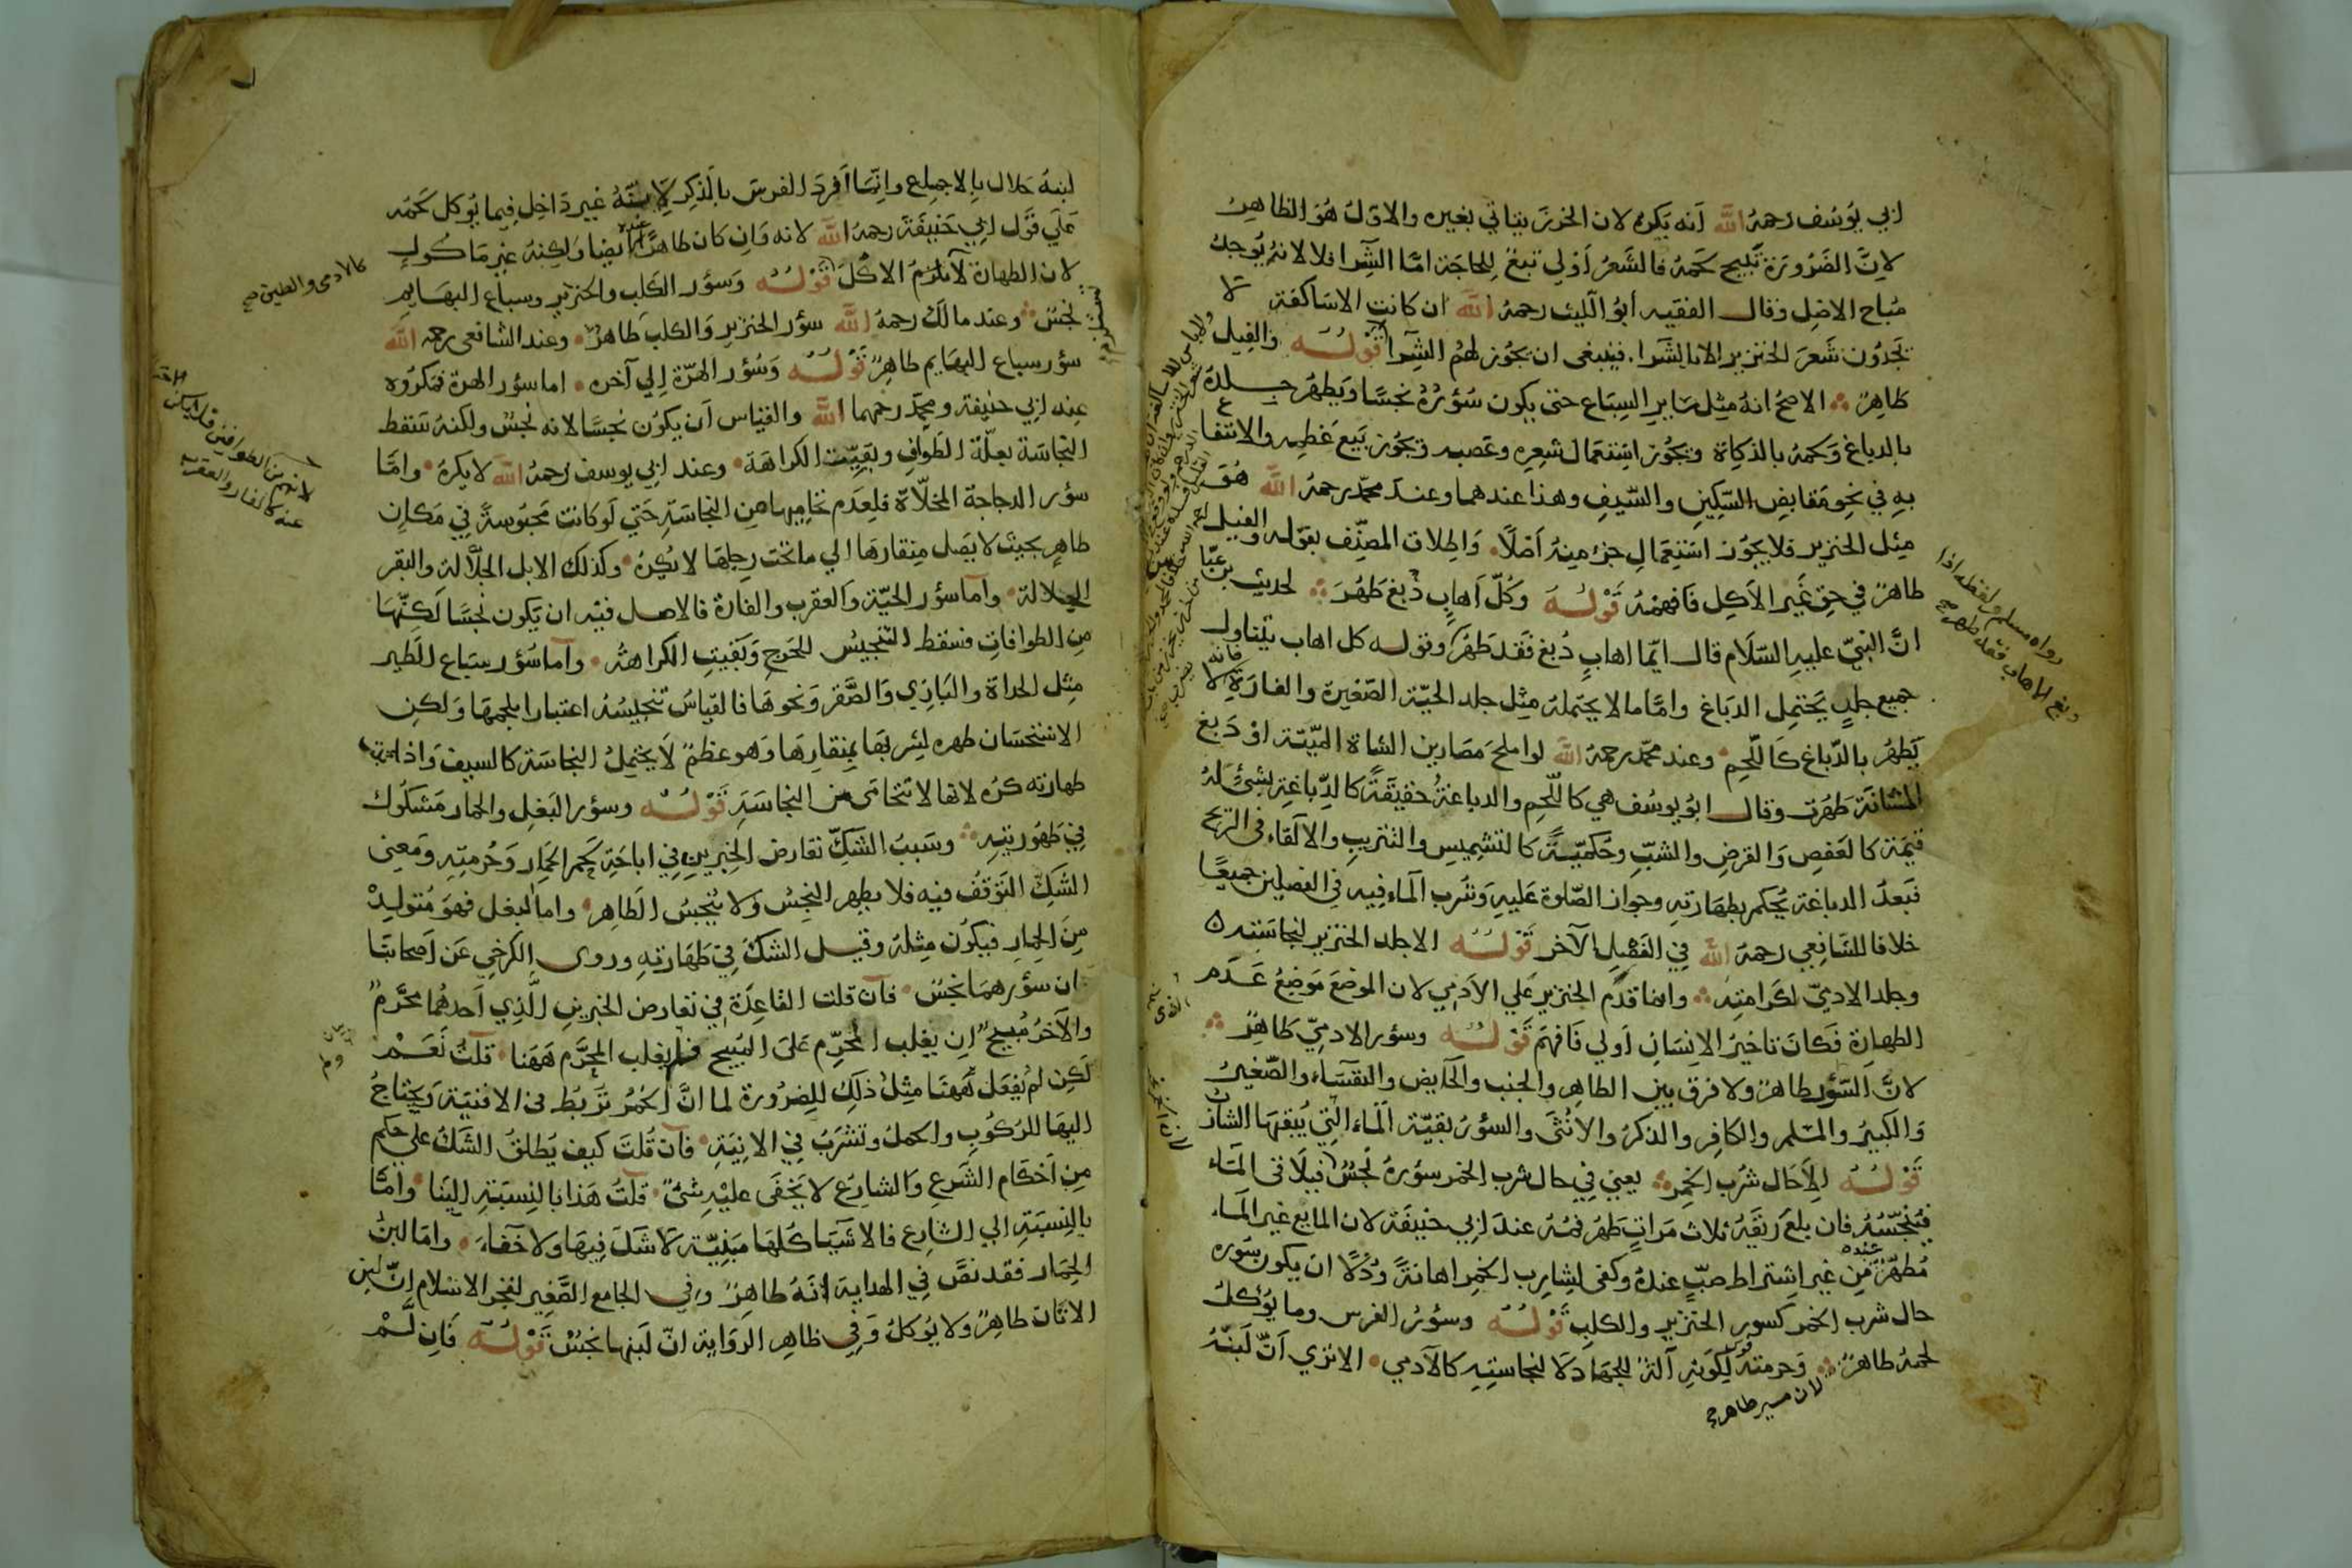 ابي يوسف رحمه الله انه يكره لان الخرز يتاتي بغيره والاول هو الظاهر
لان الضرورة تبيح لحمه فالشعر اولي تبع للحاجة اما الشرا فلا لانه يوجد
مباح الاصل وقال الفقيه أبو الليث رحمه الله ان كانت الاساكفة لا
يجدون شعر الخنزير الا بالشرا فينبغي ان يجوز لهم الشرا قوله والفيل
طاهر الاصح انه مثل ساير السباع حتى يكون سؤره نجسا ويطهر جلده
بالدباغ ولحمه بالذكاة ويجوز استعمال شعره وعصبه ويجوز بيع عظمه والانتفاع
به في نحو مقابض السكين والسيف وهذا عندهما وعند محمد رحمه الله هو
مثل الخنزير فلا يجوز استعمال جزء منه اصلا واطلاق المصنف بقوله والفيل
طاهر في حق غير الاكل فافهمه قوله وكل اهاب دبغ طهر لحديث بن عباس
ان النبي عليه السلام قال ايما اهاب دبغ فقد طهر وقوله كل اهاب يتناول
جميع جلد يحتمل الدباغ واما ما لا يحتمله مثل جلد الحية الصغيرة والفارة فانه لا
يطهر بالدباغ كاللحم وعند محمد رحمه الله لو اصلح مصارين الشاة الميتة او دبغ
المثانة طهرت وقال ابو يوسف هي كاللحم والدباغة حقيقة كالدباغة بشئ له
قيمة كالعفص والقرض والشب وحكمية كالتشميس والتتريب والالقاء في الريح
فبعد الدباغة يحكم بطهارته وجواز الصلوة عليه وشرب الماء فيه في الفصلين جميعا
خلافا للشافعي رحمه الله في الفصل الآخر قوله الا جلد الخنزير لنجاسته
وجلد الادمي لكرامته وانما قدم الخنزير علي الادمي لان الموضع موضع عدم
الطهارة فكان تاخير الانسان اولي فافهم قوله وسؤر الادمي طاهر
لان السؤر طاهر ولا فرق بين الطاهر والجنب والحايض والنفساء والصغير
والكبير والمسلم والكافر والذكر والانثى والسؤر بقية الماء التي يبقيها الشارب
قوله الا حال شرب الخمر يعني في حال شرب الخمر سؤره نجس فيلاقي الماء
فينجسه فان بلع ريقه ثلاث مرات طهر فمه عند ابي حنيفة لان المايع غير الماء
مطهر عنده من غير اشتراط صب عنده وكفى لشارب الخمر اهانة وذلا ان يكون سوره
حال شرب الخمر كسور الخنزير والكلب قوله وسؤر الفرس وما يؤكل
لحمه طاهر وحرمته لكونه آلة للجهاد لا لنجاسته كالآدمي الا تري ان لبنه
رواه مسلم ولفظه اذا
دبغ الاهاب فقد طهر صح
لبنه حلال بالاجماع وانما افرد الفرس بالذكر لانه غير داخل فيما يؤكل لحمه
علي قول ابي حنيفة رحمه الله لانه وان كان طاهرا عنده ايضا ولكنه غير ماكول
لان الطهارة لا تلزم الاكل قوله وسؤر الكلب والخنزير وسباع البهايم
نجس وعند مالك رحمه الله سؤر الخنزير والكلب طاهر وعند الشافعي رحمه الله
سؤر سباع البهايم طاهر قوله وسؤر الهرة الي آخره اما سؤر الهرة فمكروه
عند ابي حنيفة ومحمد رحمهما الله والقياس ان يكون نجسا لانه نجس ولكنه سقط
النجاسة بعلة الطواف وبقيت الكراهة وعند ابي يوسف رحمه الله لا يكره واما
سؤر الدجاجة المخلاة فلعدم تحاميها من النجاسة حتي لو كانت محبوسة في مكان
طاهر بحيث لا يصل منقارها الي ما تحت رجلها لا يكره وكذلك الابل الجلالة والبقر
الجلالة واما سؤر الحية والعقرب والفارة فالاصل فيه ان يكون نجسا لكنها
من الطوافات فسقط التنجيس للحرج وبقيت الكراهة واما سؤر سباع الطير
مثل الحداة والبازي والصقر ونحوها فالقياس تنجيسه اعتبارا بلحمها ولكن
الاستحسان طهره لشربها بمنقارها وهو عظم لا يحتمل النجاسة كالسيف واذا ثبت
طهارته كره لانها لا تتحامى من النجاسة قوله وسؤر البغل والحمار مشكوك
في طهوريته وسبب الشك تعارض الخبرين في اباحة لحم الحمار وحرمته ومعني
الشك التوقف فيه فلا يطهر النجس ولا ينجس الطاهر واما البغل فهو متولد
من الحمار فيكون مثله وقيل الشك في طهارته وروى الكرخي عن اصحابنا
ان سؤرهما نجس فان قلت القاعدة في تعارض الخبرين الذي احدهما محرم
والآخر مبيح ان يغلب المحرم على المبيح فلم يغلب المحرم ههنا قلت نعم
لكن لم يفعل ههنا مثل ذلك للضرورة لما ان الحمر تربط في الافنية ويحتاج
اليها للركوب والحمل وتشرب في الانية فان قلت كيف يطلق الشك علي حكم
من احكام الشرع والشارع لا يخفى عليه شئ قلت هذا بالنسبة الينا واما
بالنسبة الي الشارع فالاشيا كلها مبنية لا شك فيها ولا خفاء واما لبن
الحمار فقد نص في الهداية انه طاهر وفي الجامع الصغير لفخر الاسلام ان لبن
الاتان طاهر ولا يؤكل وفي ظاهر الرواية ان لبنها نجس قوله فان لم
كالادمى والطين صح